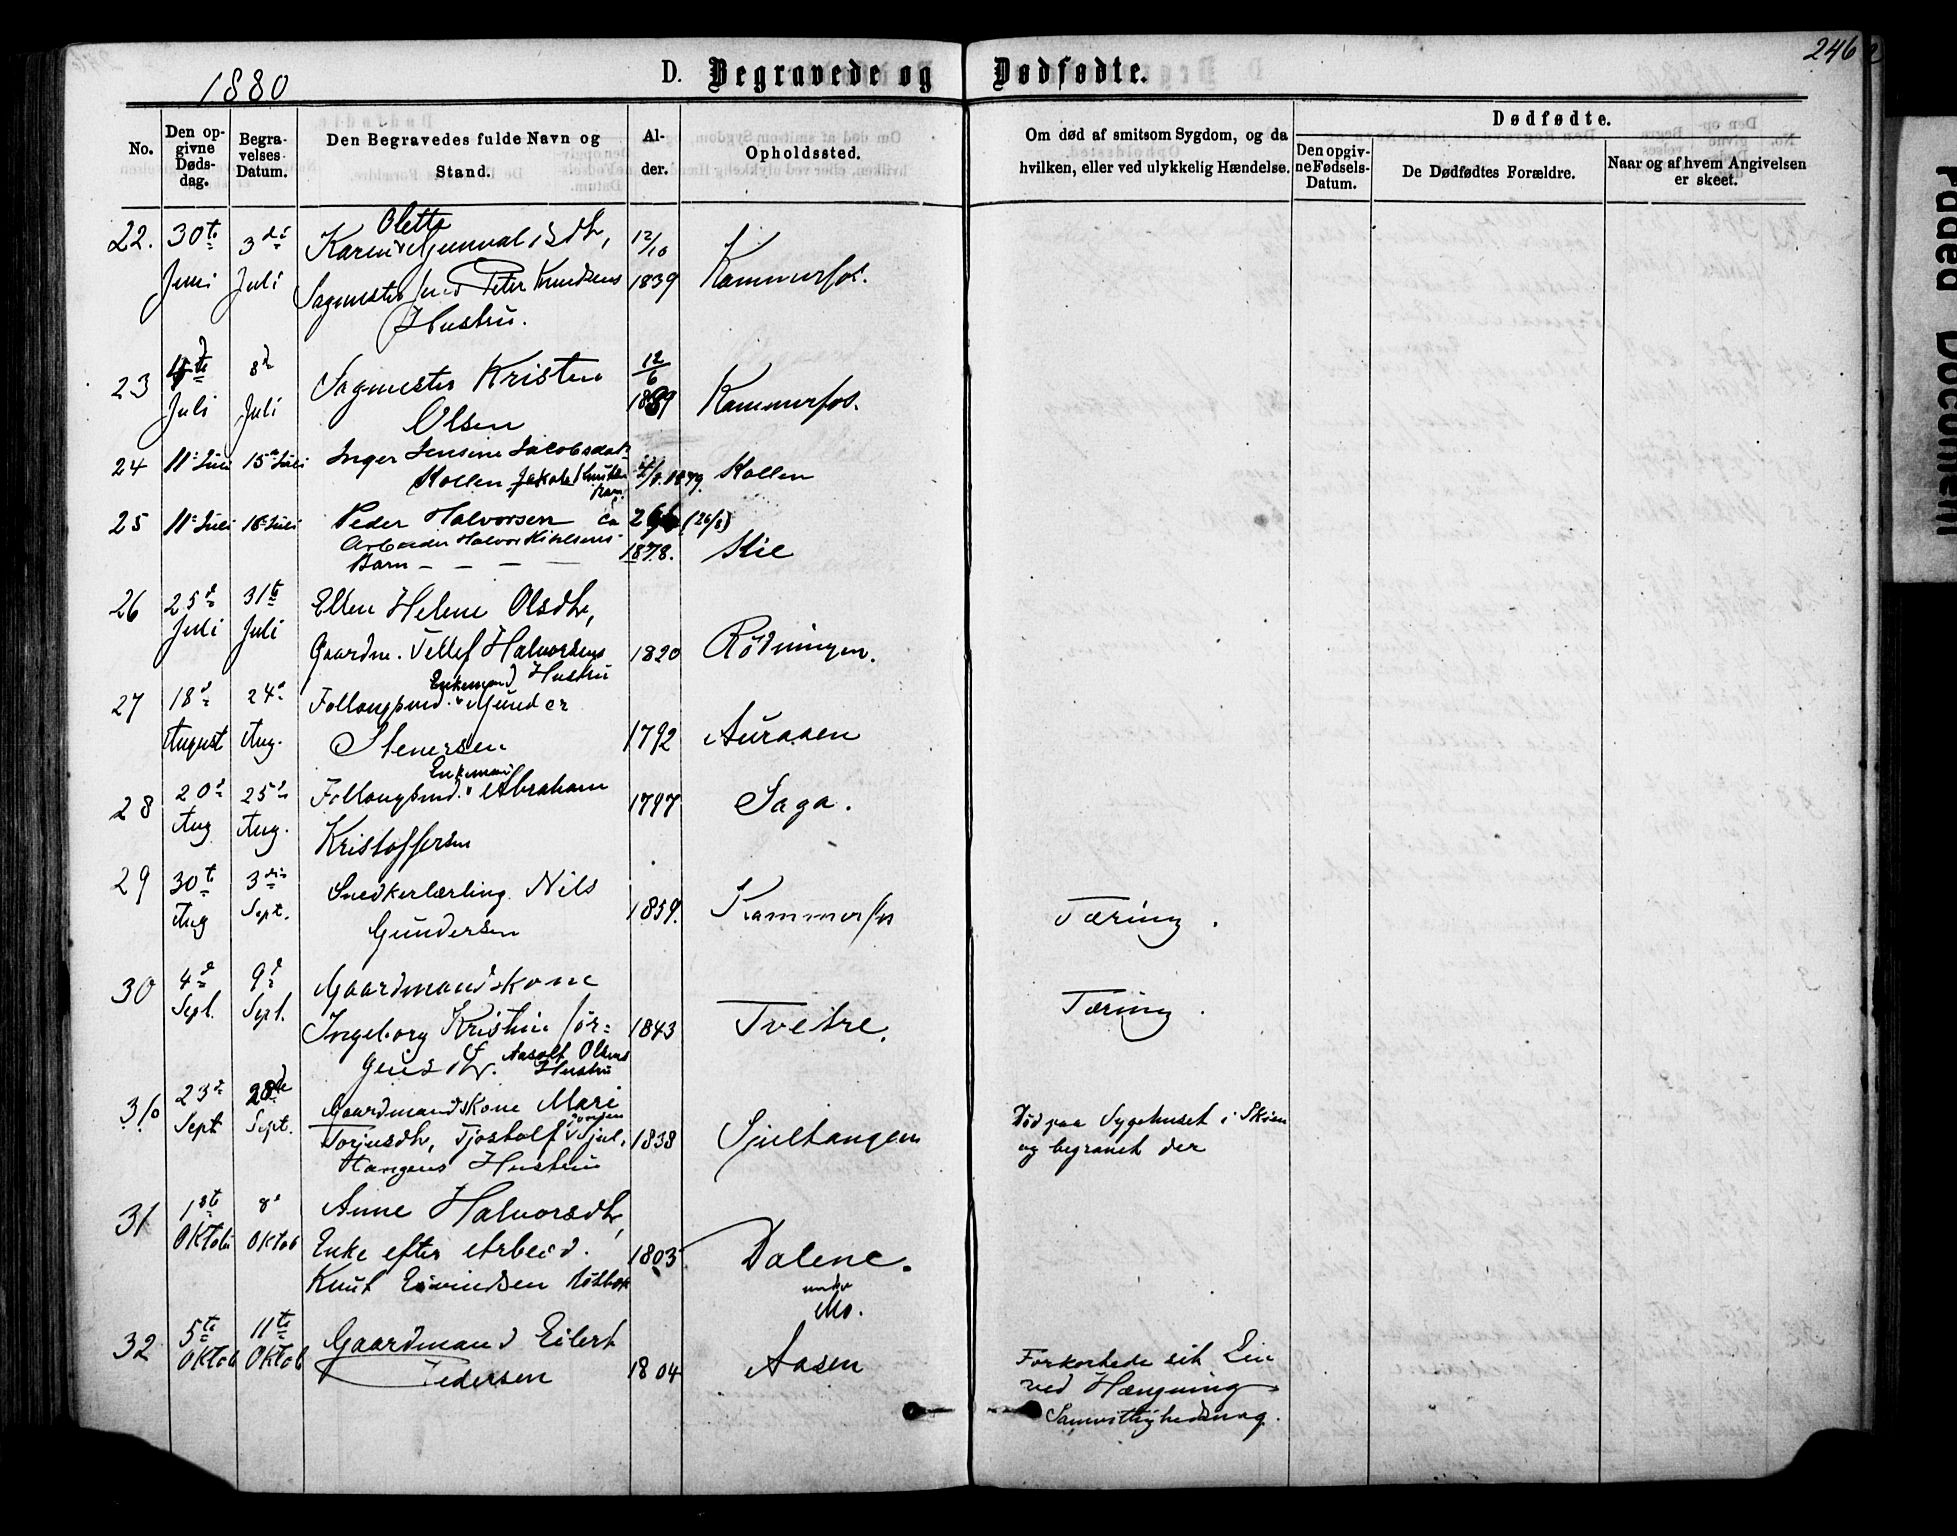 1880
D. Begravede og Dødfødte.
246
No.
Den opgivne Dødsdag.
Begravelses Datum.
Den Begravedes fulde Navn og Stand.
Alder.
Opholdssted.
Om død af smitsom Sygdom, og da hvilken, eller ved ulykkelig Hændelse.
Dødfødte.
Den opgivne Fødsels-Datum.
De Dødfødtes Forældre.
Naar og af hvem Angivelsen er skeet.
22. 30te 3die Oletta
Karen Gunvaldsdtr, 12/10
Juni Juli Sagmester Peter Knudsens 1839 Kammerfos.
Hustru.
23 Juli 8d Juli Sagmester Kristen 12/6 Kammerfos.
Olsen
24 11te Juli 15de Juli Inger Jensine Jacobsdatr
Kollen Jakob Knutsen Barn 1879. Kollen
25 11te Juli 16de Juli Peder Halvorsen ca (26/8)
Arbeider Halvor
Barn 1878. Kil
26 25de 31te Ellen Helene Olsdtr,
Juli Juli Gaardm. Tellef Halvorsens 1820 Rødningen.
Hustru
27 18de 24de Enkemand
Follaugsmd. Gunder
August Aug. Stenersen 1792 Auraasen
28 20de 25de Enkemand
Follaugsmd. Abraham 1797 Saga.
Aug Aug. Kristoffersen
29 30te 3die Snedkerlærling Nils
Aug Sept. Gundersen 1859. Kammerfos Tæring.
30 4de 9de Gaardmandskone
Sept. Sept. Ingeborg Kristine Jør= 1843 Tveitre. Tæring.
gensdtr. Aasolf Olsens
Hustru
23de 28de Gaardmandskone Mari
Sept Sept. Torjusdtr, Tjostolf 1838 Sjultangen
Hustru
Død paa Sygehuset i Skien
og begravet der
31 1ste 8de Anne Halvorsdtr,
Oktob Oktob Enke efter Arbeid. 1803 Dalene.
Knut Eivindsen under
Mo.
32 5te 11te Gaardmand Eilert
Oktob Oktob Pedersen 1804 Aasen
Forkortede sit Liv
ved Hængning
Samvittighedsnag.